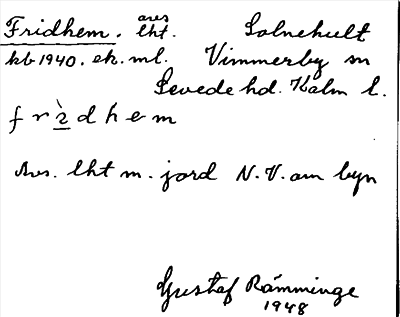 Fridhem. avs lht. Solnehult
kb 1940. ek. ml. Vimmerby sn
Sevede hd. Kalm l.
f r ì d h e m
Avs. lht m. jord N.V. om byn
Gustaf Rämminge
1948